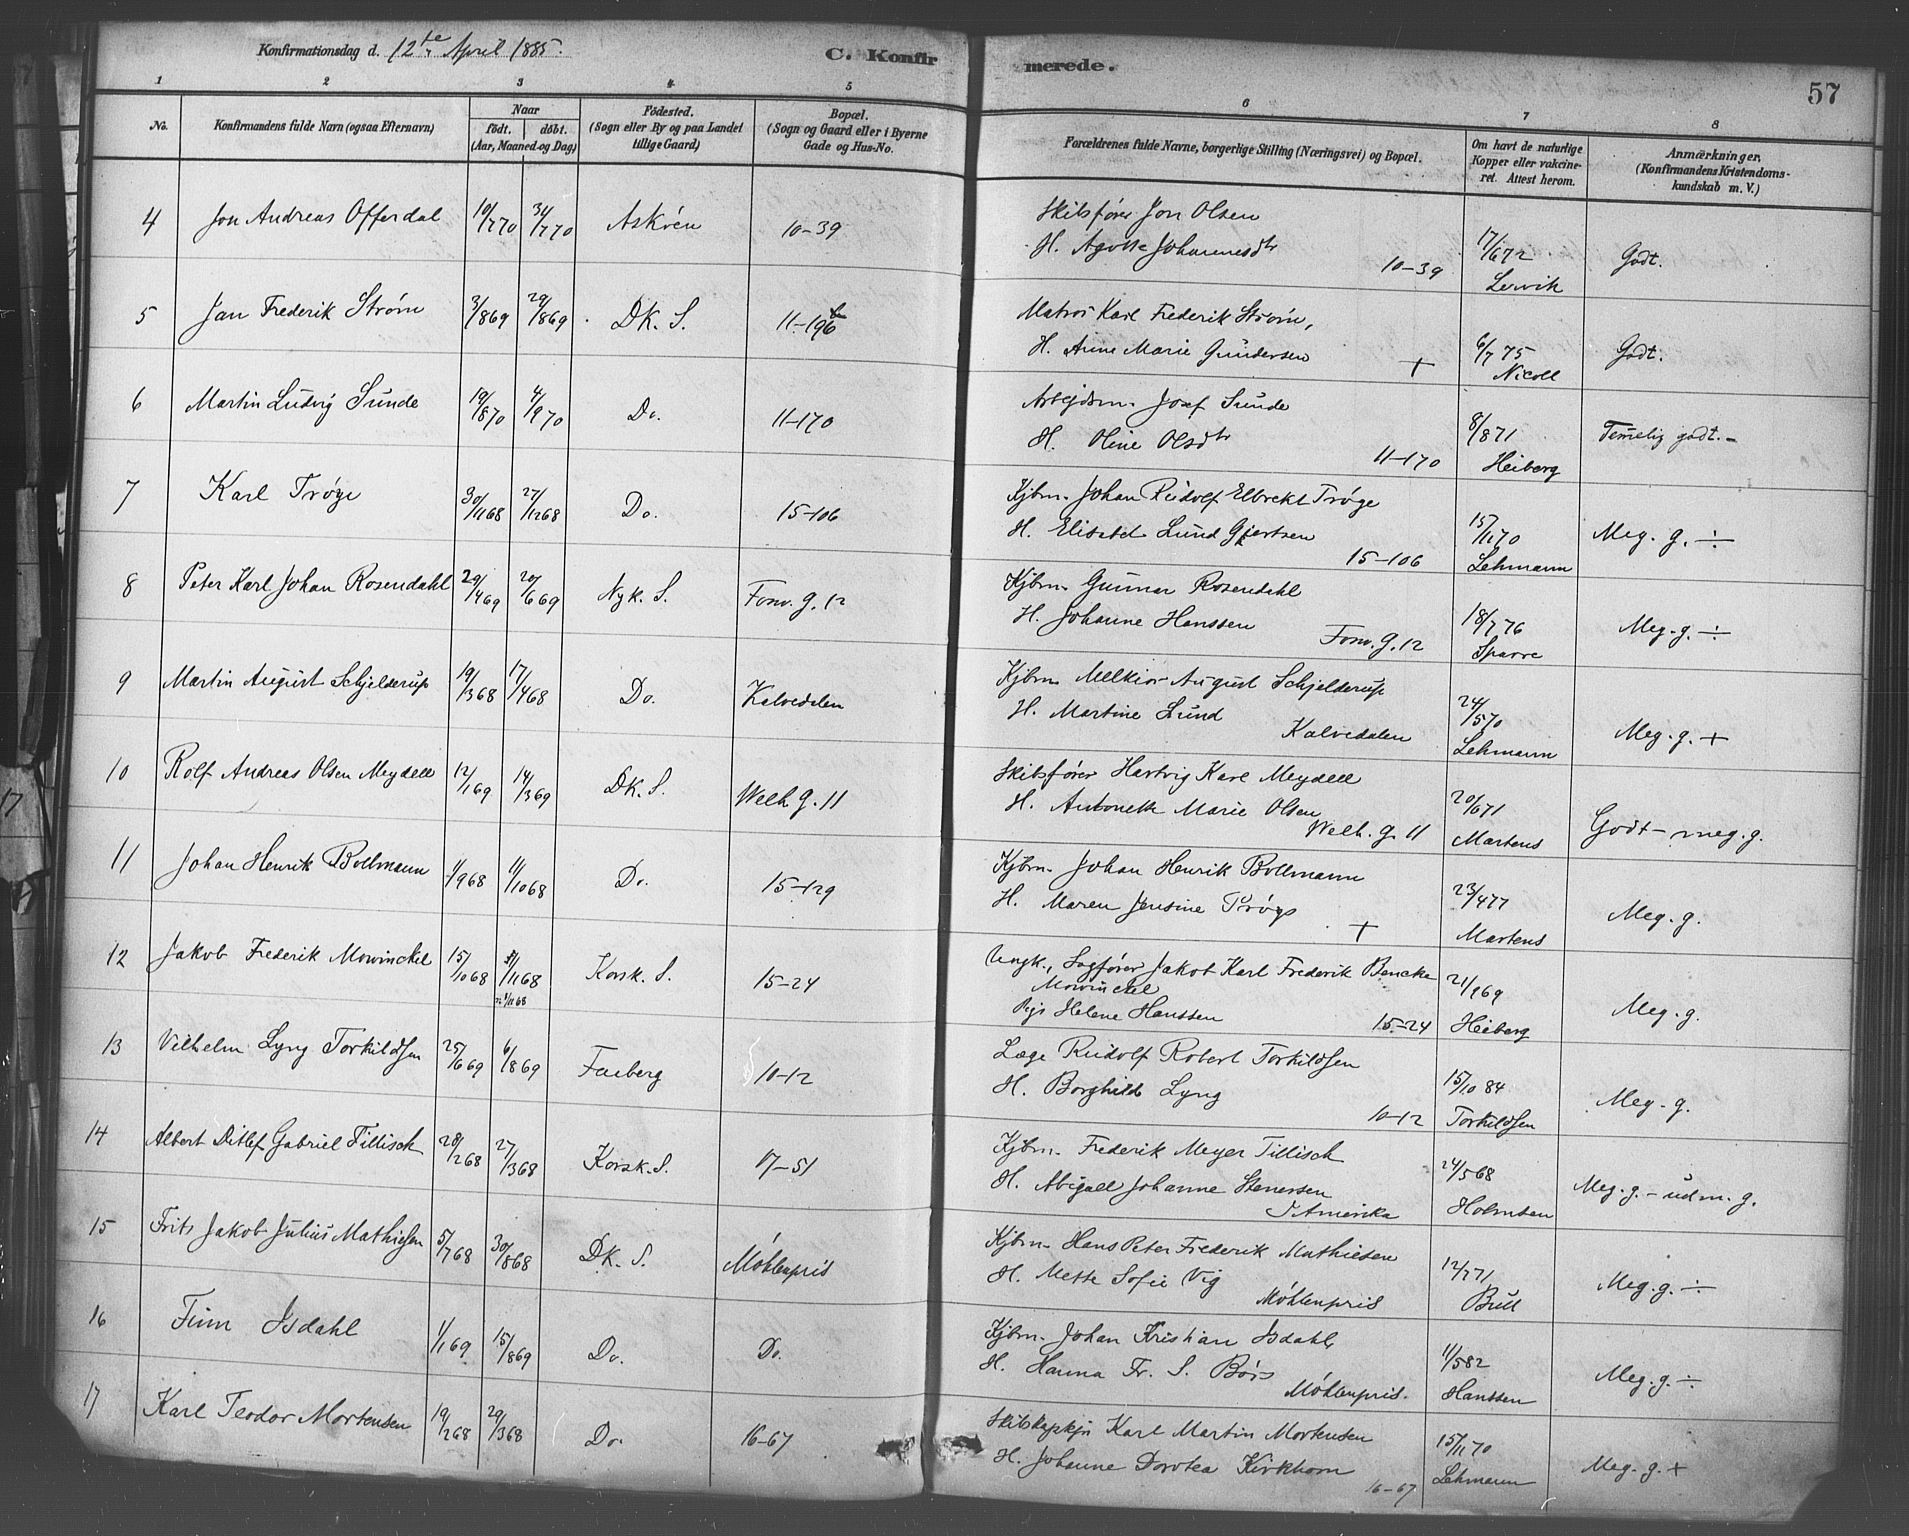 Konfirmationsdag d. 12te April 1885. C. Konfirmerede. 57
1 2 3 4 5 6 7 8
No. Konfirmandens fulde Navn (ogsaa Efternavn) Naar födt. döbt. (Aar, Maaned og Dag) Födested. (Sogn eller By og paa Landet tillige Gaard) Bopæl. (Sogn og Gaard eller i Byerne Gade og Hus-No. Forældrenes fulde Navne, borgerlige Stilling (Næringsvei) og Bopæl. Om havt de naturlige Kopper eller vakcineret. Attest herom. Anmærkninger. (Konfirmandens Kristendomskundskab m. V.)
4 Jon Andreas Offerdal 10/7 70 31/7 70 Askøen 10-39 Skibsfører Jon Olsen 17/6 72 Godt.
H. Agotte Johannesdtr 10-39 Lervik
5 Jan Frederik Strøm 3/8 69 29/8 69 DK. S. 11-196 Matros Karl Frederik Strøm, 6/7 75 Godt.
H. Anne Marie Gundersen + Nicoll
6 Martin Ludvig Sunde 19/8 70 4/9 70 Do. 11-170 Arbejdsm. Josef Sunde 8/8 71 Temelig godt.-
H. Oline Olsdtr 11-170 Heiberg
7 Karl Trøye 30/11 68 27/12 68 Do. 15-106 Kjbm. Johan Rudolf Elbrekt Trøye 15/11 70 Meg. g. ÷
H. Elisabet Lund Gjertsen 15-106 Lehmann
8 Peter Karl Johan Rosendahl 29/4 69 20/6 69 Nyk. S. Fosw. g. 12 Kjbm. Gunnar Rosendahl 18/7 76 Meg. g. ÷
H. Johanne Hanssen Fosw. g. 12 Sparre
9 Martin August Schjelderup 19/3 68 17/4 68 Do. Kalvedalen Kjbm. Melkior August Schjelderup 24/5 70 Meg. g. +
H. Martine Lund Kalvedalen Lehmann
10 Rolf Andreas Olsen Meydell 12/1 69 14/3 69 DK. S. Welh. g. 11 Skibsfører Hartvig Karl Meydell 20/6 71 Godt - meg. g.
H. Antonette Marie Olsen Welh. g. 11 Martens
11 Johan Henrik Bollmann 1/9 68 11/10 68 Do. 15-129 Kjbm. Johan Henrik Bollmann 23/4 77 Meg. g.
H. Maren Jensine Trøye + Martens
12 Jakob Frederik Mowinckel 15/10 68 /11 68 Korsk. S. 15-24 Ungk., Sagfører Jakob Karl Frederik Bencke 21/9 69 Meg. g.
22/11 68 Mowinckel
Pige Helene Hanssen 15-24 Heiberg
13 Vilhelm Lyng Torkildsen 25/6 69 6/8 69 Faaberg 10-12 Læge Rudolf Robert Torkildsen 15/10 84 Meg. g.
H. Borghild Lyng 10-12 Torkildsen
14 Albert Ditlef Gabriel Tillisch 28/2 68 27/3 68 Korsk. S. 17-51 Kjbm. Frederik Meyer Tillisch 24/5 68 Meg. g. - udm. g.
H. Abigael Johanne Stenersen I Amerika Holmsen
15 Frits Jakob Julius Mathiesen 5/7 68 30/8 68 DK. S. Møhlenpris Kjbm. Hans Peter Frederik Mathiesen 12/7 71 Meg. g. ÷
H. Mette Sofie Vig Møhlenpris Bull
16 Finn Isdahl 1/1 69 15/8 69 Do. Do. Kjbm. Johan Kristian Isdahl 11/5 82 Meg. g. ÷
H. Hanna Fr. S. Børs Møhlenpris. Hanssen
17 Karl Teodor Mortensen 19/2 68 29/3 68 Do. 16-67 Karl Martin Mortensen 15/11 70 Meg. g. +
H. Johanne Dorotea Kirkhorn 16-67 Lehmann